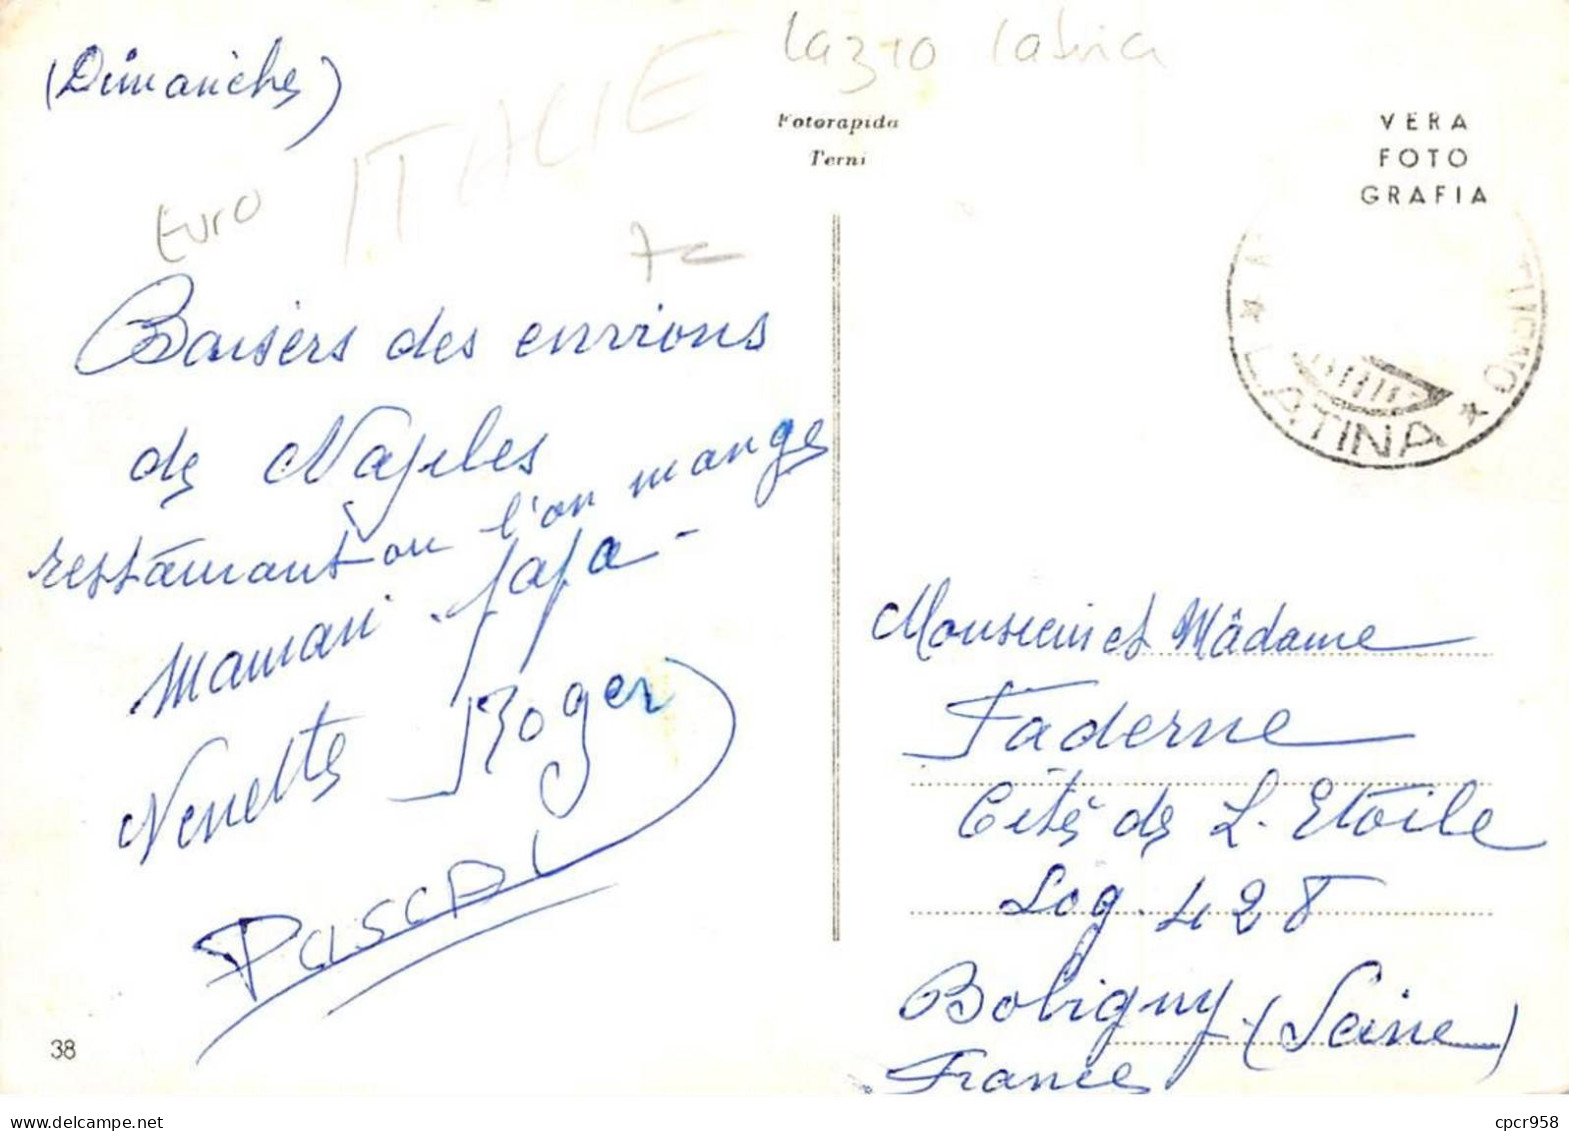 (Dimanche)
Lazio latina
ITALIE
Euro
7c
Fotorapida
Terni
VERA
FOTO
GRAFIA
LATINA
Baisers des environs
de Naples
restaurant ou l'on mange
Maman - papa -
Nenette Roger
PASCAL
Monsieur et Mâdame
Faderne
Cité de L. Etoile
Log. 428
Bobigny. (Seine)
France
38
www.delcampe.net
cpcr958